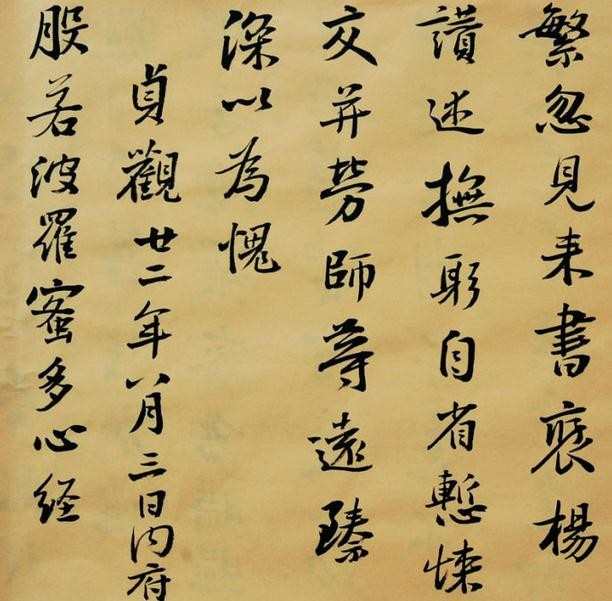 繁忽見来書褒楊
讃述撫躬自省慙悚
交并勞師等遠臻
深以為愧
貞觀廿二年八月三日内府
般若波羅蜜多心经